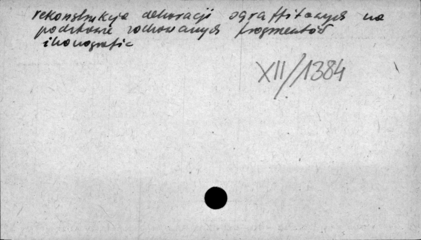 rekonstrukcja dekoracji sgraffitowych na
podstawie zachowanych fragmentów
i ikonografii
XII/1384